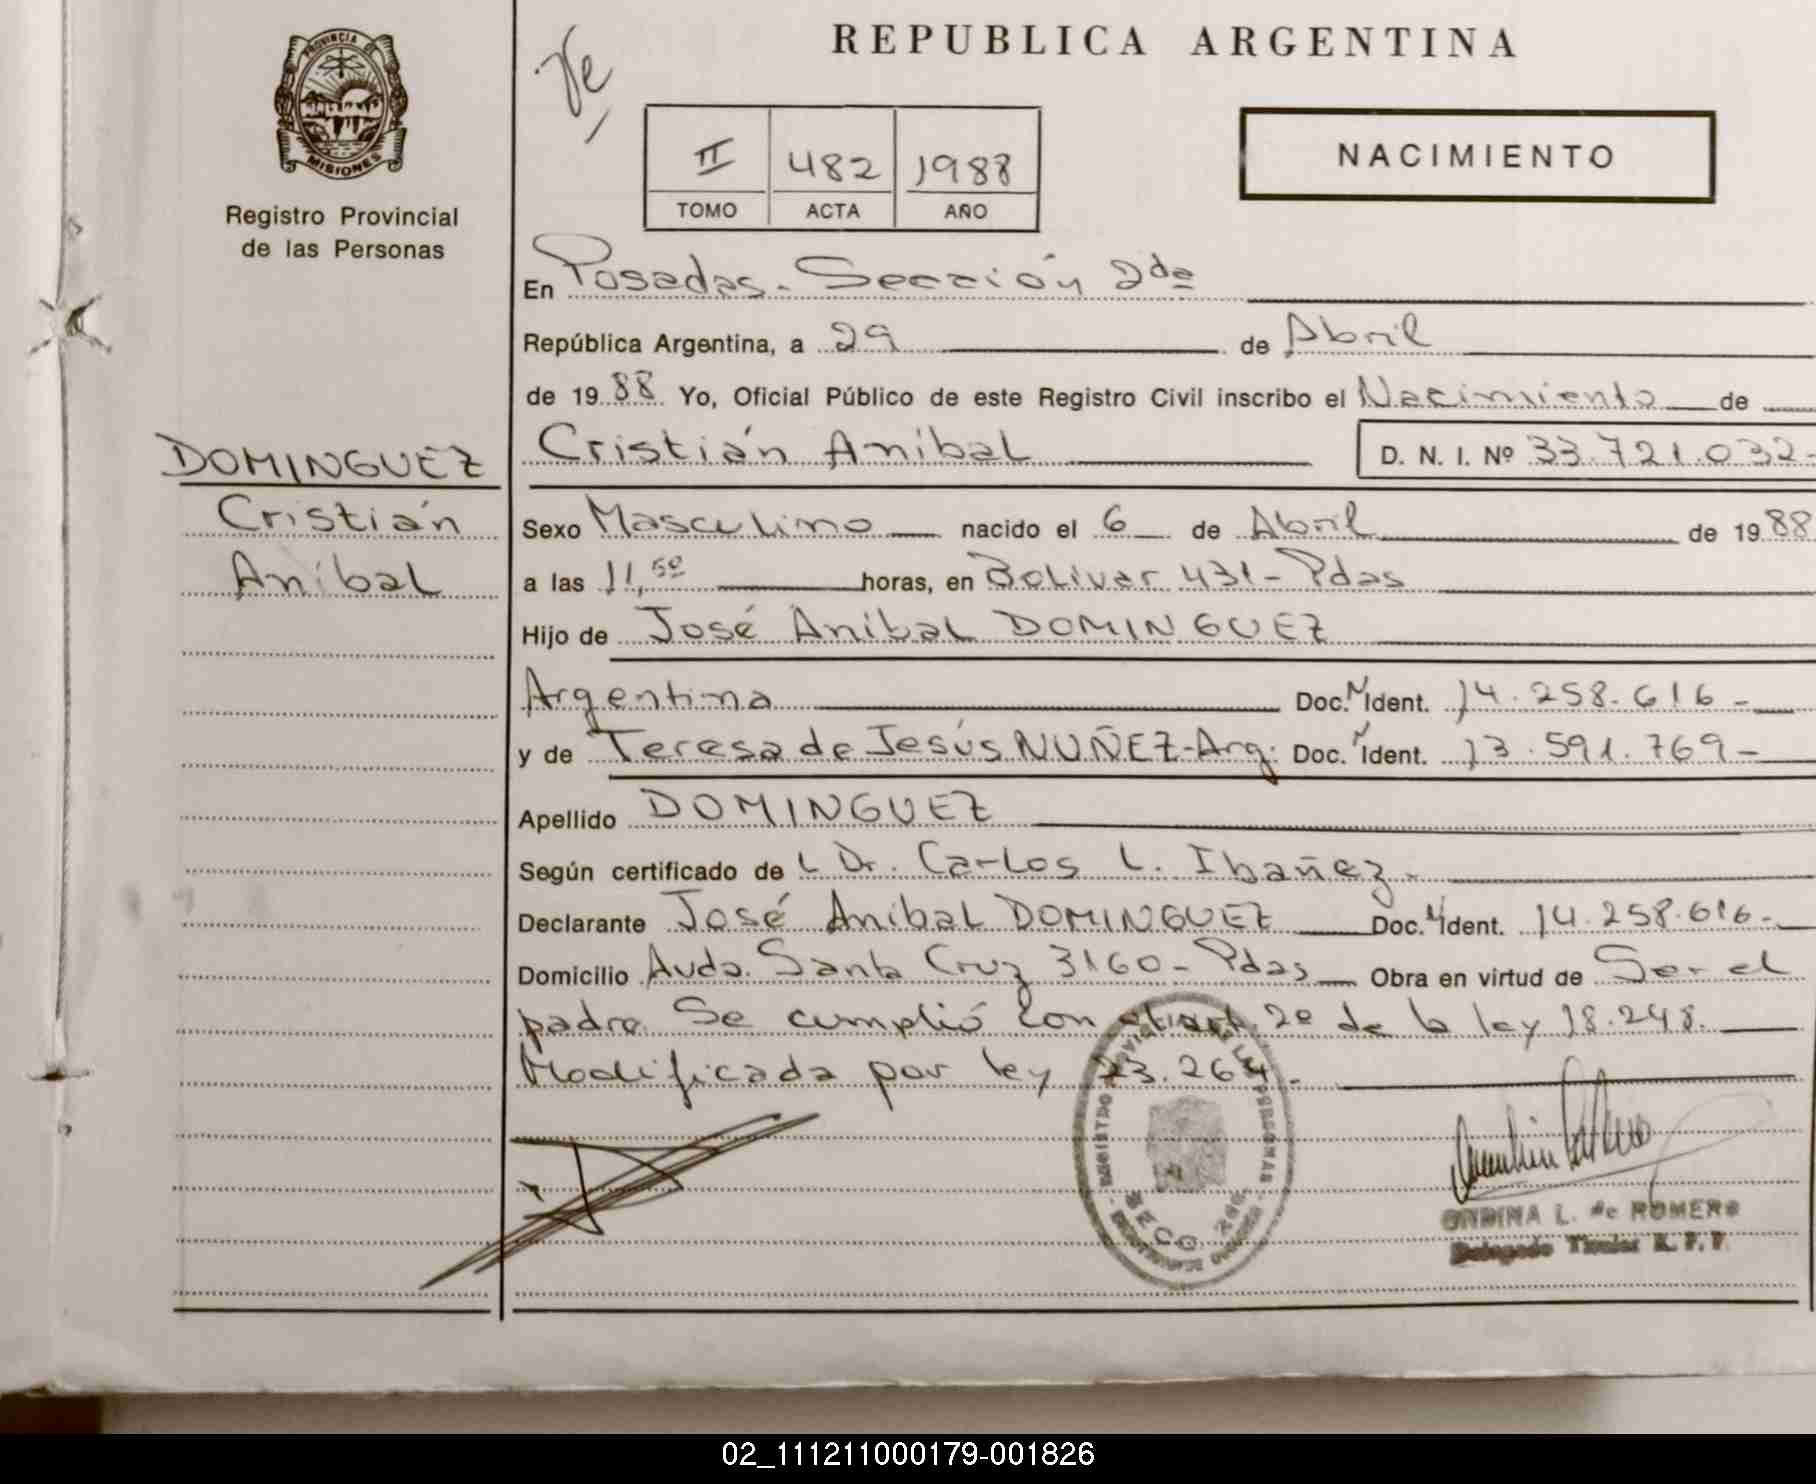 PROVINCIA DE
MISIONES
Registro Provincial
de las Personas
REPUBLICA ARGENTINA
II 482 1988
TOMO ACTA AÑO
NACIMIENTO
En Posadas. Sección 2da
República Argentina, a 29 de Abril
de 1988 Yo, Oficial Público de este Registro Civil inscribo el Nacimiento de
DOMINGUEZ
Cristián
Aníbal
Cristián Aníbal D. N. I. Nº 33.721.032-
Sexo Masculino nacido el 6 de Abril de 1988
a las 11,50 horas, en Bolivar 431- Pdas
Hijo de José Aníbal DOMINGUEZ
Argentina Doc. N Ident. 14.258.616-
y de Teresa de Jesús NUÑEZ-Arg. Doc. N Ident. 13.591.769-
Apellido DOMINGUEZ
Según certificado de L Dr. Carlos L. Ibañez.
Declarante José Aníbal DOMINGUEZ Doc. N Ident. 14.258.616-
Domicilio Avda. Santa Cruz 3160- Pdas Obra en virtud de Ser el
padre. Se cumplió con el art. 2º de la ley 18.248.
Modificada por ley 23.264.
REGISTRO PROVINCIAL DE LAS PERSONAS
SECC. 2da
ONDINA L. de ROMERO
Delegado Titular R. P. P.
02_111211000179-001826